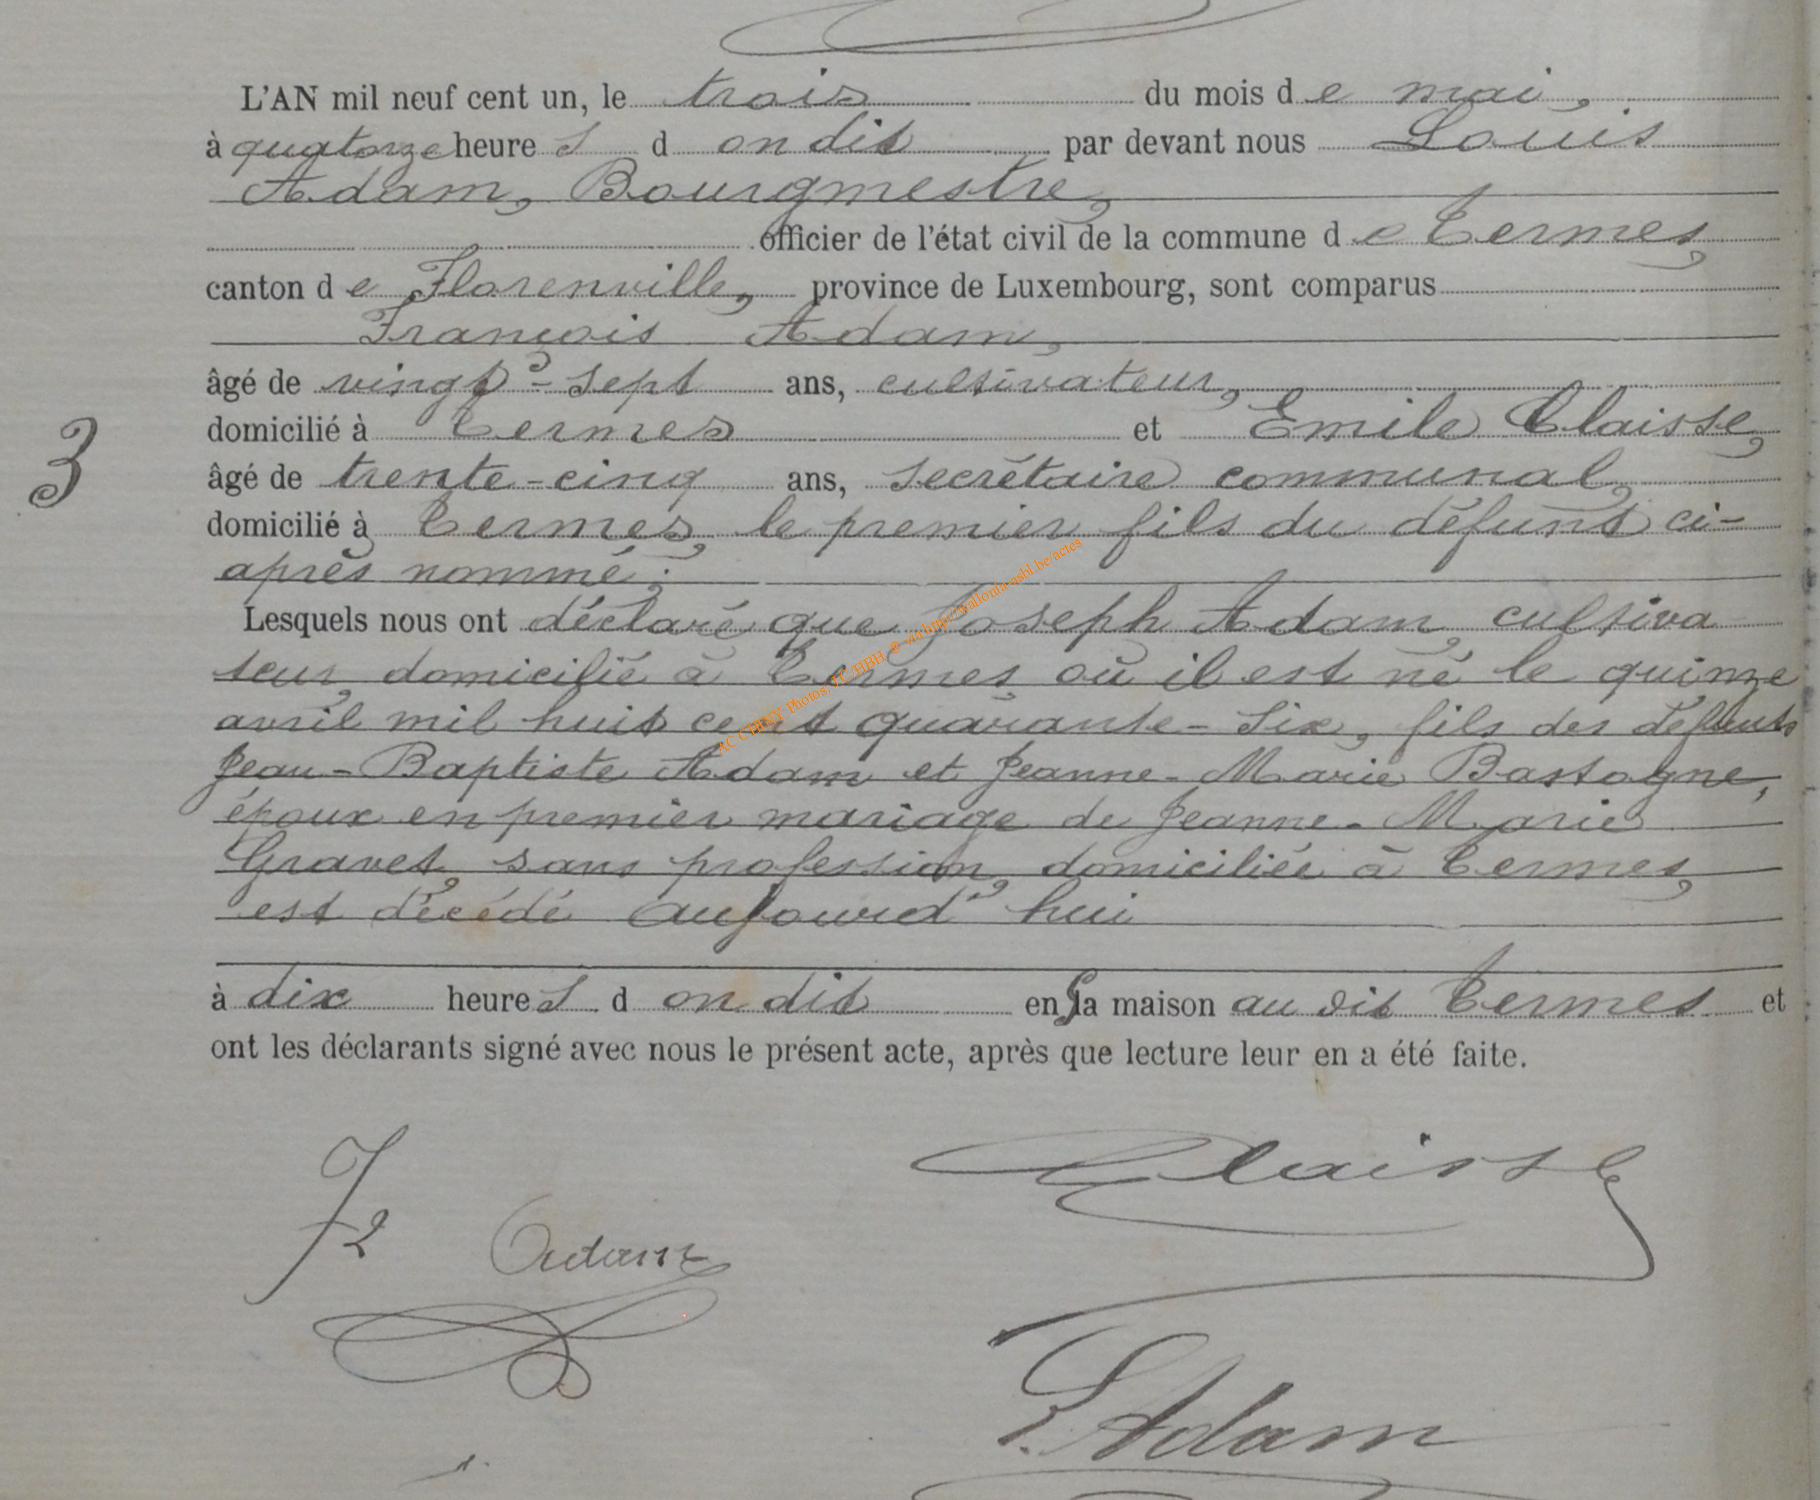 L'AN mil neuf cent un, le trois du mois de mai,
à quatorze heures d on dit par devant nous Louis
Adam, Bourgmestre,
officier de l'état civil de la commune de Termes,
canton de Florenville, province de Luxembourg, sont comparus
François Adam,
âgé de vingt-sept ans, cultivateur,
domicilié à Termes et Emile Claisse,
3
âgé de trente-cinq ans, secrétaire communal,
domicilié à Termes, le premier fils du défunt ci-
après nommé;
Lesquels nous ont déclaré que Joseph Adam, cultiva
teur, domicilié à Termes où il est né le quinze
avril mil huit cent quarante-six, fils des défunts
Jean-Baptiste Adam et Jeanne-Marie Bastogne,
époux en premier mariage de Jeanne-Marie
Gravet, sans profession, domiciliée à Termes,
est décédé aujourd'hui
à dix heures d on dit en sa maison au dit Termes et
ont les déclarants signé avec nous le présent acte, après que lecture leur en a été faite.
Claisse
Adam
L. Adam